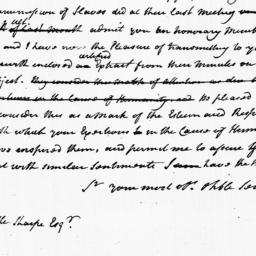 umission of Slaves did at their last Meeting
of last month admit you an honorary Membe
and I have now the Pleasure of transmitting to y
with enclosed an certified Extract from their Minutes on
ject. they consider this
in the Cause of Humanity and be pleased
consider this as a Mark of the Esteem and Resp
th which your Exertions in the Cause of Hum
ve inspired them, and permit me to assure y
d with similar Sentiments I have the H
Sr your most Ob. Hble Ser
lle Sharpe Esqr.